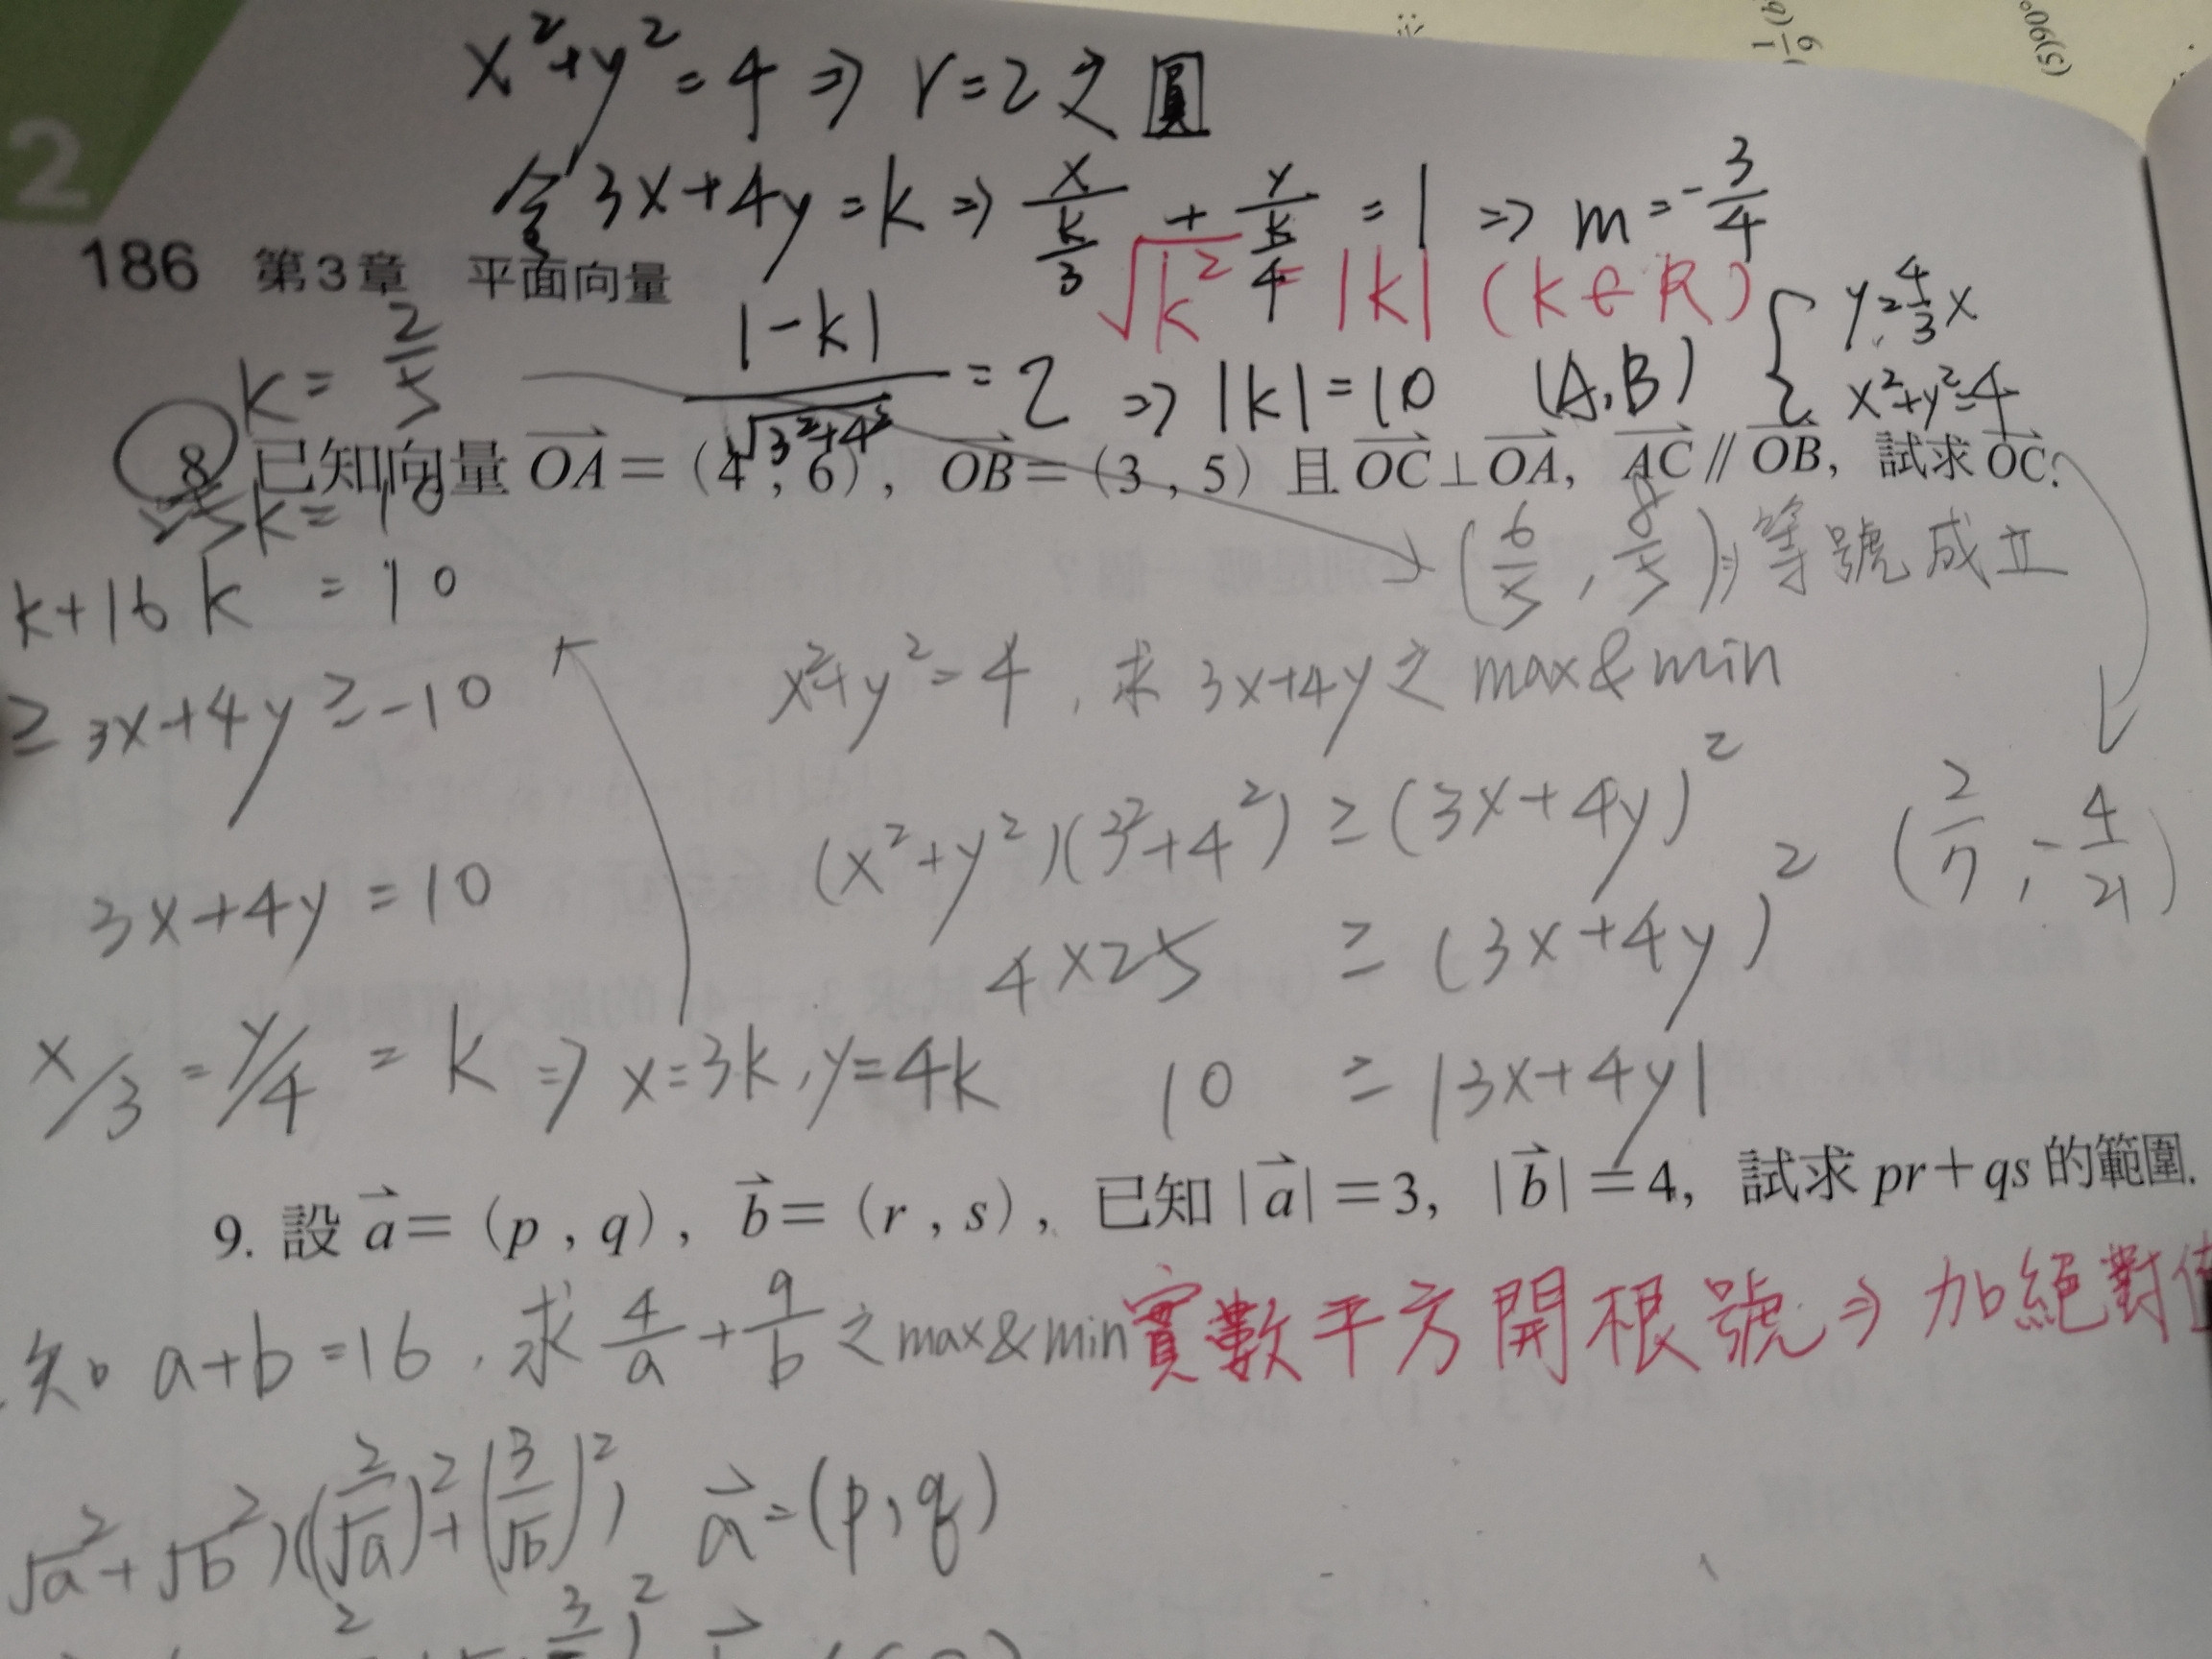 x²+y²=4 ⇒ r=2之圓
令3x+4y=k ⇒ x/(k/3) + y/(k/4) = 1 ⇒ m=-3/4
2
186 第3章 平面向量
√k² = |k| (k∈R)
k = 2/5
|-k|/√(3²+4²) = 2 ⇒ |k|=10 (A,B) { y=4/3x
x²+y²=4
8. 已知向量 OA=(4,6), OB=(3,5) 且 OC⊥OA, AC∥OB, 試求 OC.
25k=10
(6/5, 8/5) ⇒ 等號成立
k+16k = 10
x²+y²=4, 求 3x+4y 之 max&min
≥ 3x+4y ≥ -10
(x²+y²)(3²+4²) ≥ (3x+4y)²
(2/7, -4/21)
3x+4y=10
4×25 ≥ (3x+4y)²
x/3 = y/4 = k ⇒ x=3k, y=4k
10 ≥ |3x+4y|
9. 設 a=(p,q), b=(r,s), 已知 |a|=3, |b|=4, 試求 pr+qs 的範圍.
實數平方開根號 ⇒ 加絕對值
知 a+b=16, 求 4/a + 9/b 之 max&min
√a²+√b²)((2/√a)²+(3/√b)²) a=(p,q)